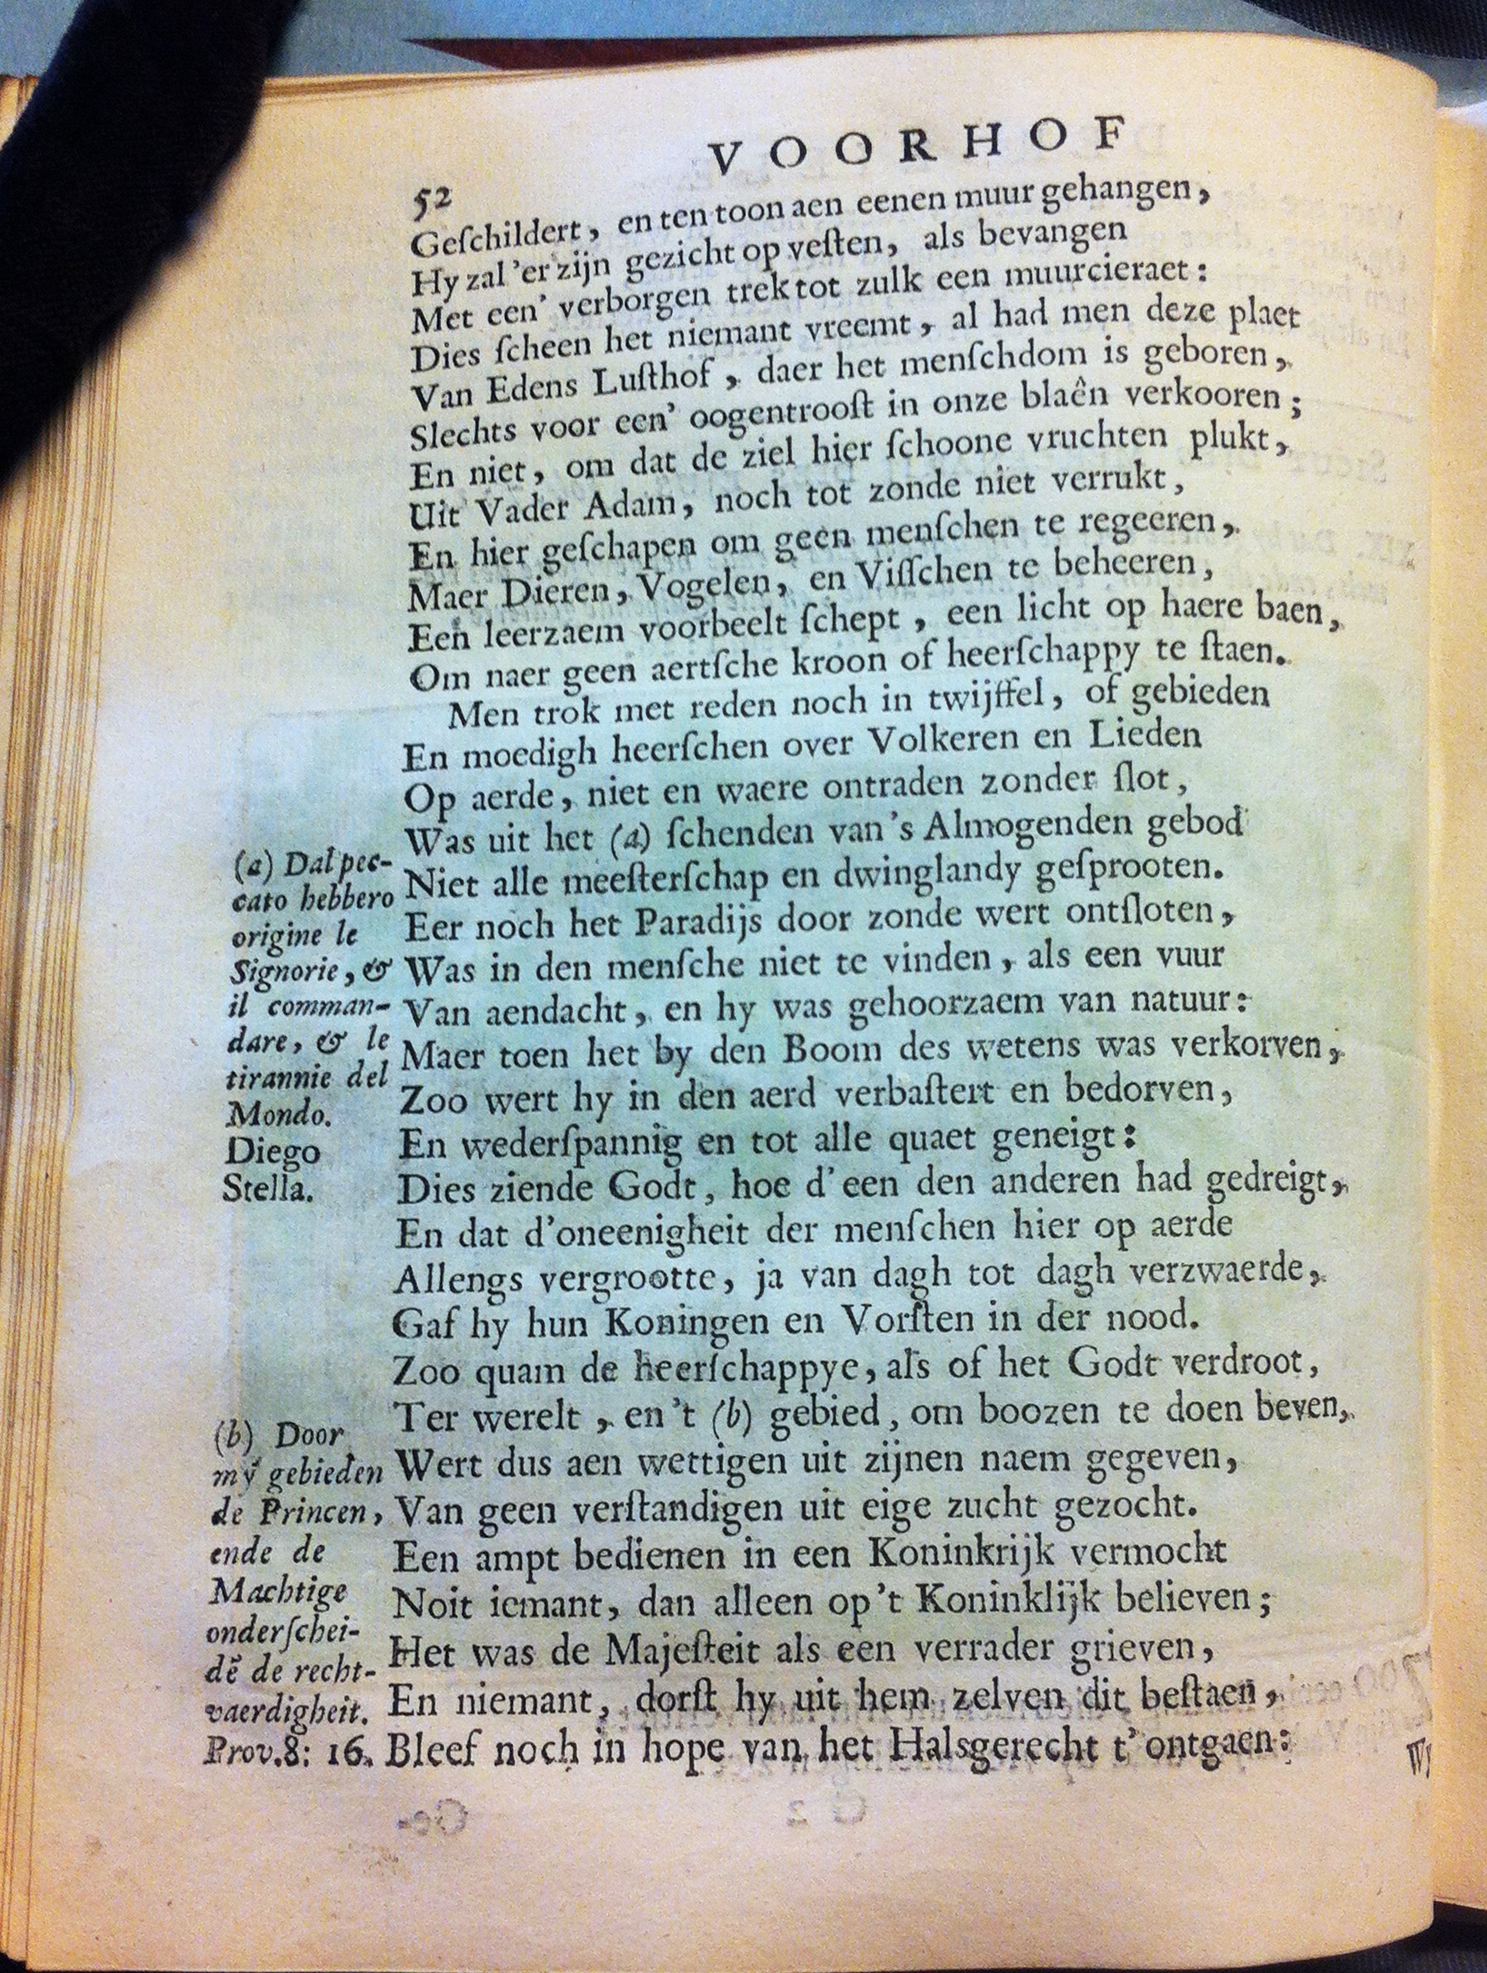 VOORHOF
52
Geſchildert, en ten toon aen eenen muur gehangen,
Hy zal 'er zijn gezicht op veſten, als bevangen
Met een' verborgen trek tot zulk een muurcieraet:
Dies ſcheen het niemant vreemt, al had men deze plaet
Van Edens Luſthof, daer het menſchdom is geboren,
Slechts voor een' oogentrooſt in onze blaên verkooren;
En niet, om dat de ziel hier ſchoone vruchten plukt,
Uit Vader Adam, noch tot zonde niet verrukt,
En hier geſchapen om geen menſchen te regeeren,
Maer Dieren, Vogelen, en Viſſchen te beheeren,
Een leerzaem voorbeelt ſchept, een licht op haere baen,
Om naer geen aertſche kroon of heerſchappy te ſtaen.
Men trok met reden noch in twijffel, of gebieden
En moedigh heerſchen over Volkeren en Lieden
Op aerde, niet en waere ontraden zonder ſlot,
Was uit het (a) ſchenden van 's Almogenden gebod
Niet alle meeſterſchap en dwinglandy geſprooten.
Eer noch het Paradijs door zonde wert ontſloten,
Was in den menſche niet te vinden, als een vuur
Van aendacht, en hy was gehoorzaem van natuur:
Maer toen het by den Boom des wetens was verkorven,
Zoo wert hy in den aerd verbaſtert en bedorven,
En wederſpannig en tot alle quaet geneigt:
Dies ziende Godt, hoe d'een den anderen had gedreigt,
En dat d'oneenigheit der menſchen hier op aerde
Allengs vergrootte, ja van dagh tot dagh verzwaerde,
Gaf hy hun Koningen en Vorſten in der nood.
Zoo quam de heerſchappye, als of het Godt verdroot,
Ter werelt, en 't (b) gebied, om boozen te doen beven,
Wert dus aen wettigen uit zijnen naem gegeven,
Van geen verſtandigen uit eige zucht gezocht.
Een ampt bedienen in een Koninkrijk vermocht
Noit iemant, dan alleen op 't Koninklijk believen;
Het was de Majeſteit als een verrader grieven,
En niemant, dorſt hy uit hem zelven dit beſtaen,
Bleef noch in hope van het Halsgerecht t'ontgaen:
(a) Dal pec-
cato hebbero
origine le
Signorie, &
il comman-
dare, & le
tirannie del
Mondo.
Diego
Stella.
(b) Door
mÿ gebieden
de Princen,
ende de
Machtige
onderſchei-
dē de recht-
vaerdigheit.
Prov. 8: 16.